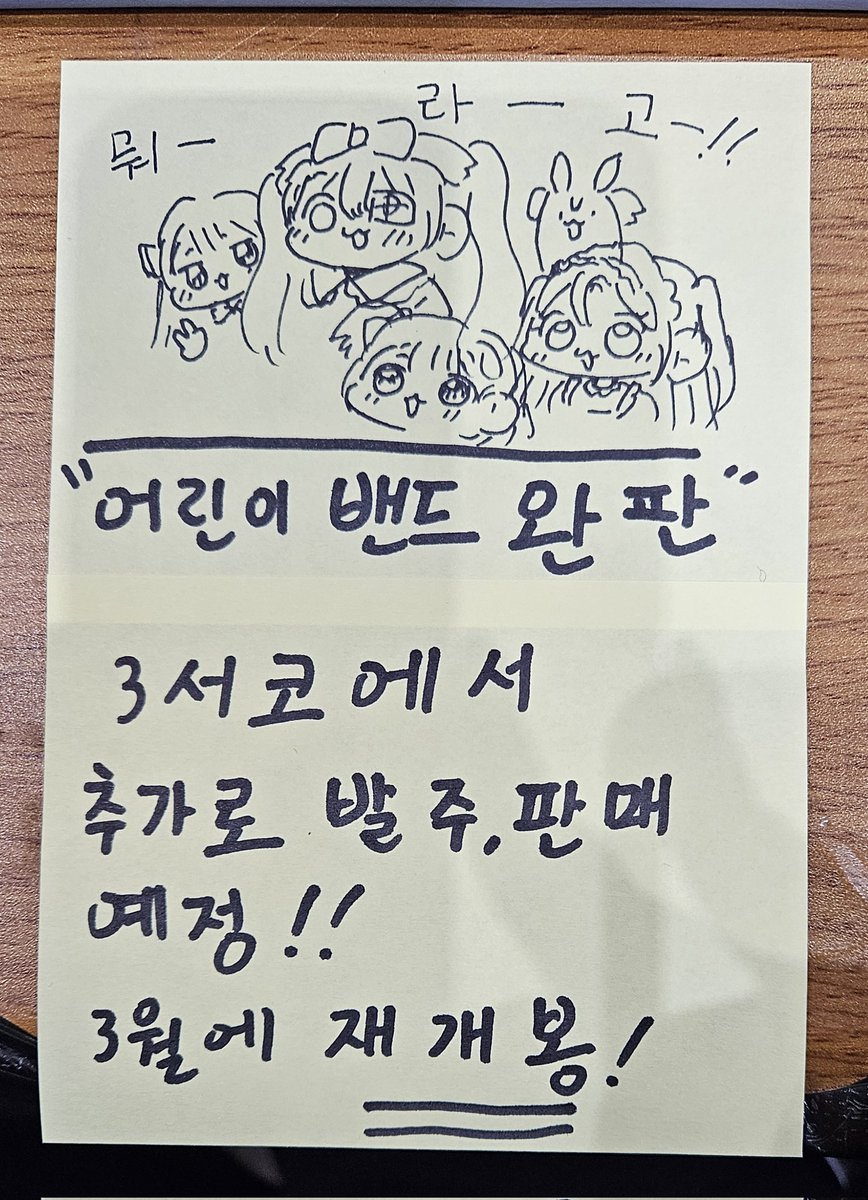 뭐ー 라ー고ー!!
"어린이 밴드 완판"
3서코에서
추가로 발주, 판매
예정!!
3월에 재개봉!